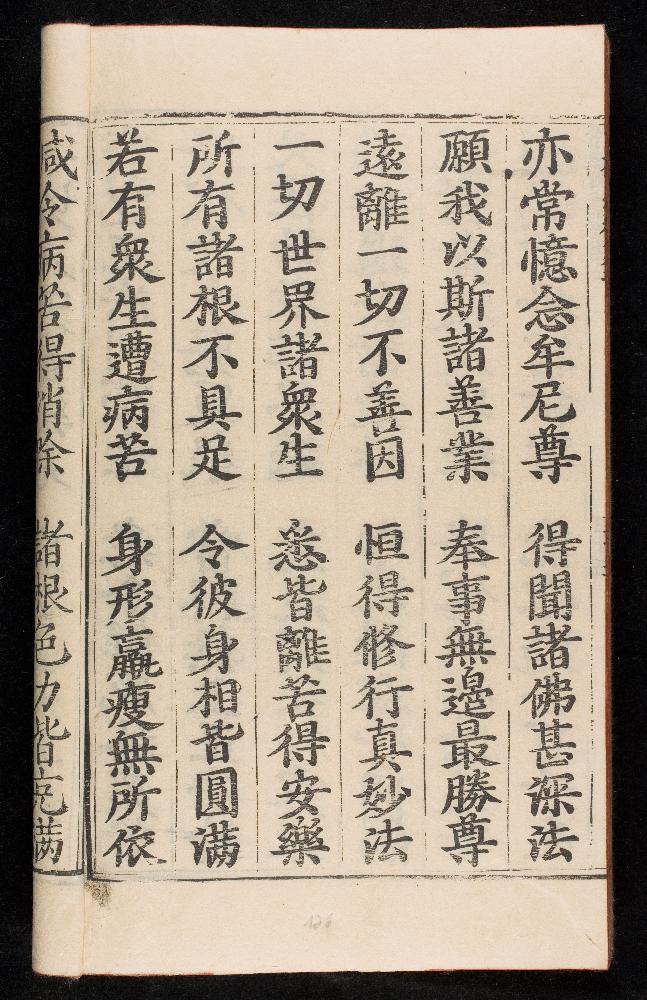 亦常憶念牟尼尊　得聞諸佛甚深法
願我以斯諸善業　奉事無邊最勝尊
遠離一切不善因　恒得修行真妙法
一切世界諸衆生　悉皆離苦得安樂
所有諸根不具足　令彼身相皆圓滿
若有衆生遭病苦　身形羸瘦無所依
咸令病苦得消除　諸根色力皆充滿
126